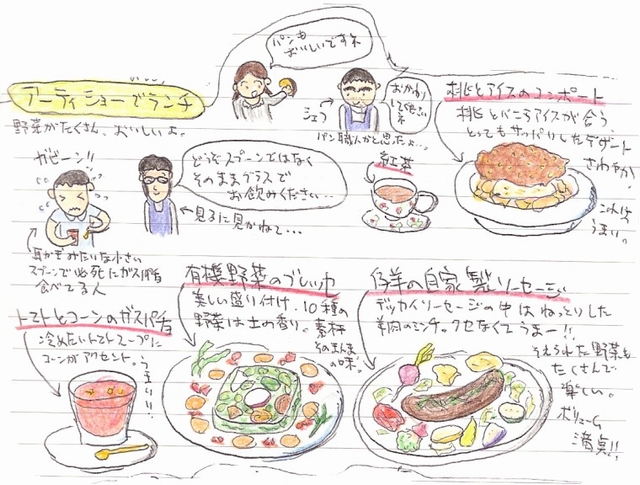 パンも
おいしいですネ
アーティショーでランチ
野菜がたくさん、おいしいよ。
シェフ
おかわり
して下さいネ
パン職人かと思たよ...
桃とアイスのコンポート
桃とバニラアイスが合う。
とってもサッパリしたデザート
さわやか。
これは
うまい。
紅茶
ガビーン!!
どうぞスプーンではなく
そのままグラスで
お飲みください...
見るに見かねて...
耳かきみたいな小さい
スプーンで必死にガスパチョ
食べてる人
トマトとコーンのガスパチョ
冷めたいトマトスープに
コーンがアクセント。
うまい!!
有機野菜のプレッセ
美しい盛り付け。10種の
野菜は土の香り。素材
そのまんま
の味。
仔羊の自家製ソーセージ
デッカイソーセージの中はねっとりした
羊肉のミンチ。クセなくてうまー!!
そえられた野菜も
たくさんで
楽しい。
ボリューム
満点!!